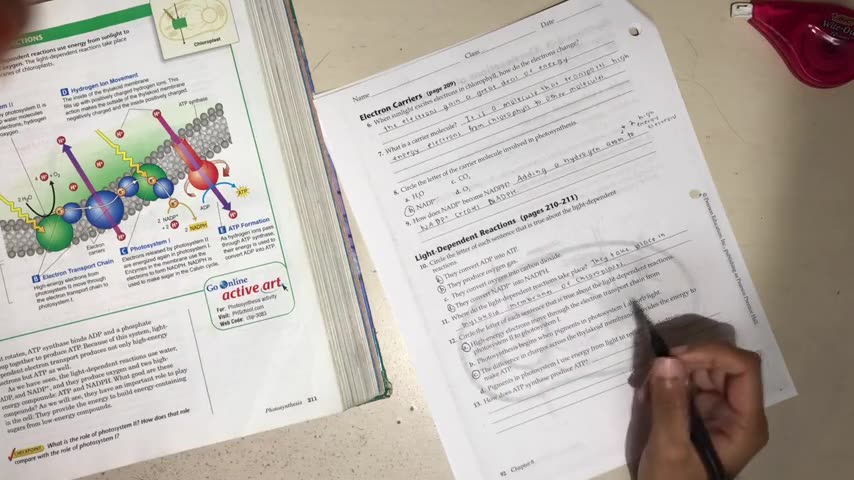 CTIONS
pendent reactions use energy from sunlight to
oxygen. The light-dependent reactions take place
anes of chloroplasts.
Chloroplast
D Hydrogen Ion Movement
The inside of the thylakoid membrane
fills up with positively charged hydrogen ions. This
action makes the outside of the thylakoid membrane
negatively charged and the inside positively charged.
ATP synthase
ADP
ATP
2 H₂O
4 H⁺ + O₂
2 NADP⁺
2 NADPH
Electron carriers
B Electron Transport Chain
High-energy electrons from
photosystem II move through
the electron transport chain to
photosystem I.
C Photosystem I
Electrons released by photosystem II
are energized again in photosystem I.
Enzymes in the membrane use the
electrons to form NADPH. NADPH is
used to make sugar in the Calvin cycle.
E ATP Formation
As hydrogen ions pass
through ATP synthase,
their energy is used to
convert ADP into ATP.
Go Online
active art
For: Photosynthesis activity
Visit: PHSchool.com
Web Code: cbp-3083
rotates, ATP synthase binds ADP and a phosphate
together to produce ATP. Because of this system,
pendent electron transport produces not only high-energy
electrons but ATP as well.
As we have seen, the light-dependent reactions use water,
ADP, and NADP⁺, and they produce oxygen and two high-
energy compounds: ATP and NADPH. What good are these
compounds? As we will see, they have an important role to play
in the cell: They provide the energy to build energy-containing
sugars from low-energy compounds.
CHECKPOINT What is the role of photosystem II? How does that role
compare with the role of photosystem I?
Photosynthesis 211
Name Class Date
Electron Carriers (page 209)
6. When sunlight excites electrons in chlorophyll, how do the electrons change?
The electrons gain a great deal of energy
7. What is a carrier molecule? It is a molecule that transports high
energy electrons from chlorophyll to other molecules
8. Circle the letter of the carrier molecule involved in photosynthesis.
a. H₂O c. CO₂
b. NADP⁺ d. O₂
9. How does NADP⁺ become NADPH? Adding a hydrogen atom to
NADP⁺ NADPH
Light-Dependent Reactions (pages 210–211)
10. Circle the letter of each sentence that is true about the light-dependent
reactions.
a. They convert ADP into ATP.
b. They produce oxygen gas.
c. They convert oxygen into carbon dioxide.
d. They convert NADP⁺ into NADPH.
11. Where do the light-dependent reactions take place? They take place in
thylakoid membranes of chloroplasts.
12. Circle the letter of each sentence that is true about the light-dependent reactions.
a. High-energy electrons move through the electron transport chain from
photosystem II to photosystem I.
b. Photosynthesis begins when pigments in photosystem I absorb light.
c. The difference in charges across the thylakoid membrane provides the energy to
make ATP.
d. Pigments in photosystem I use energy from light to
13. How does ATP synthase produce ATP?
92 Chapter 8
© Pearson Education, Inc., publishing as Pearson Prentice Hall.
Wite-Out